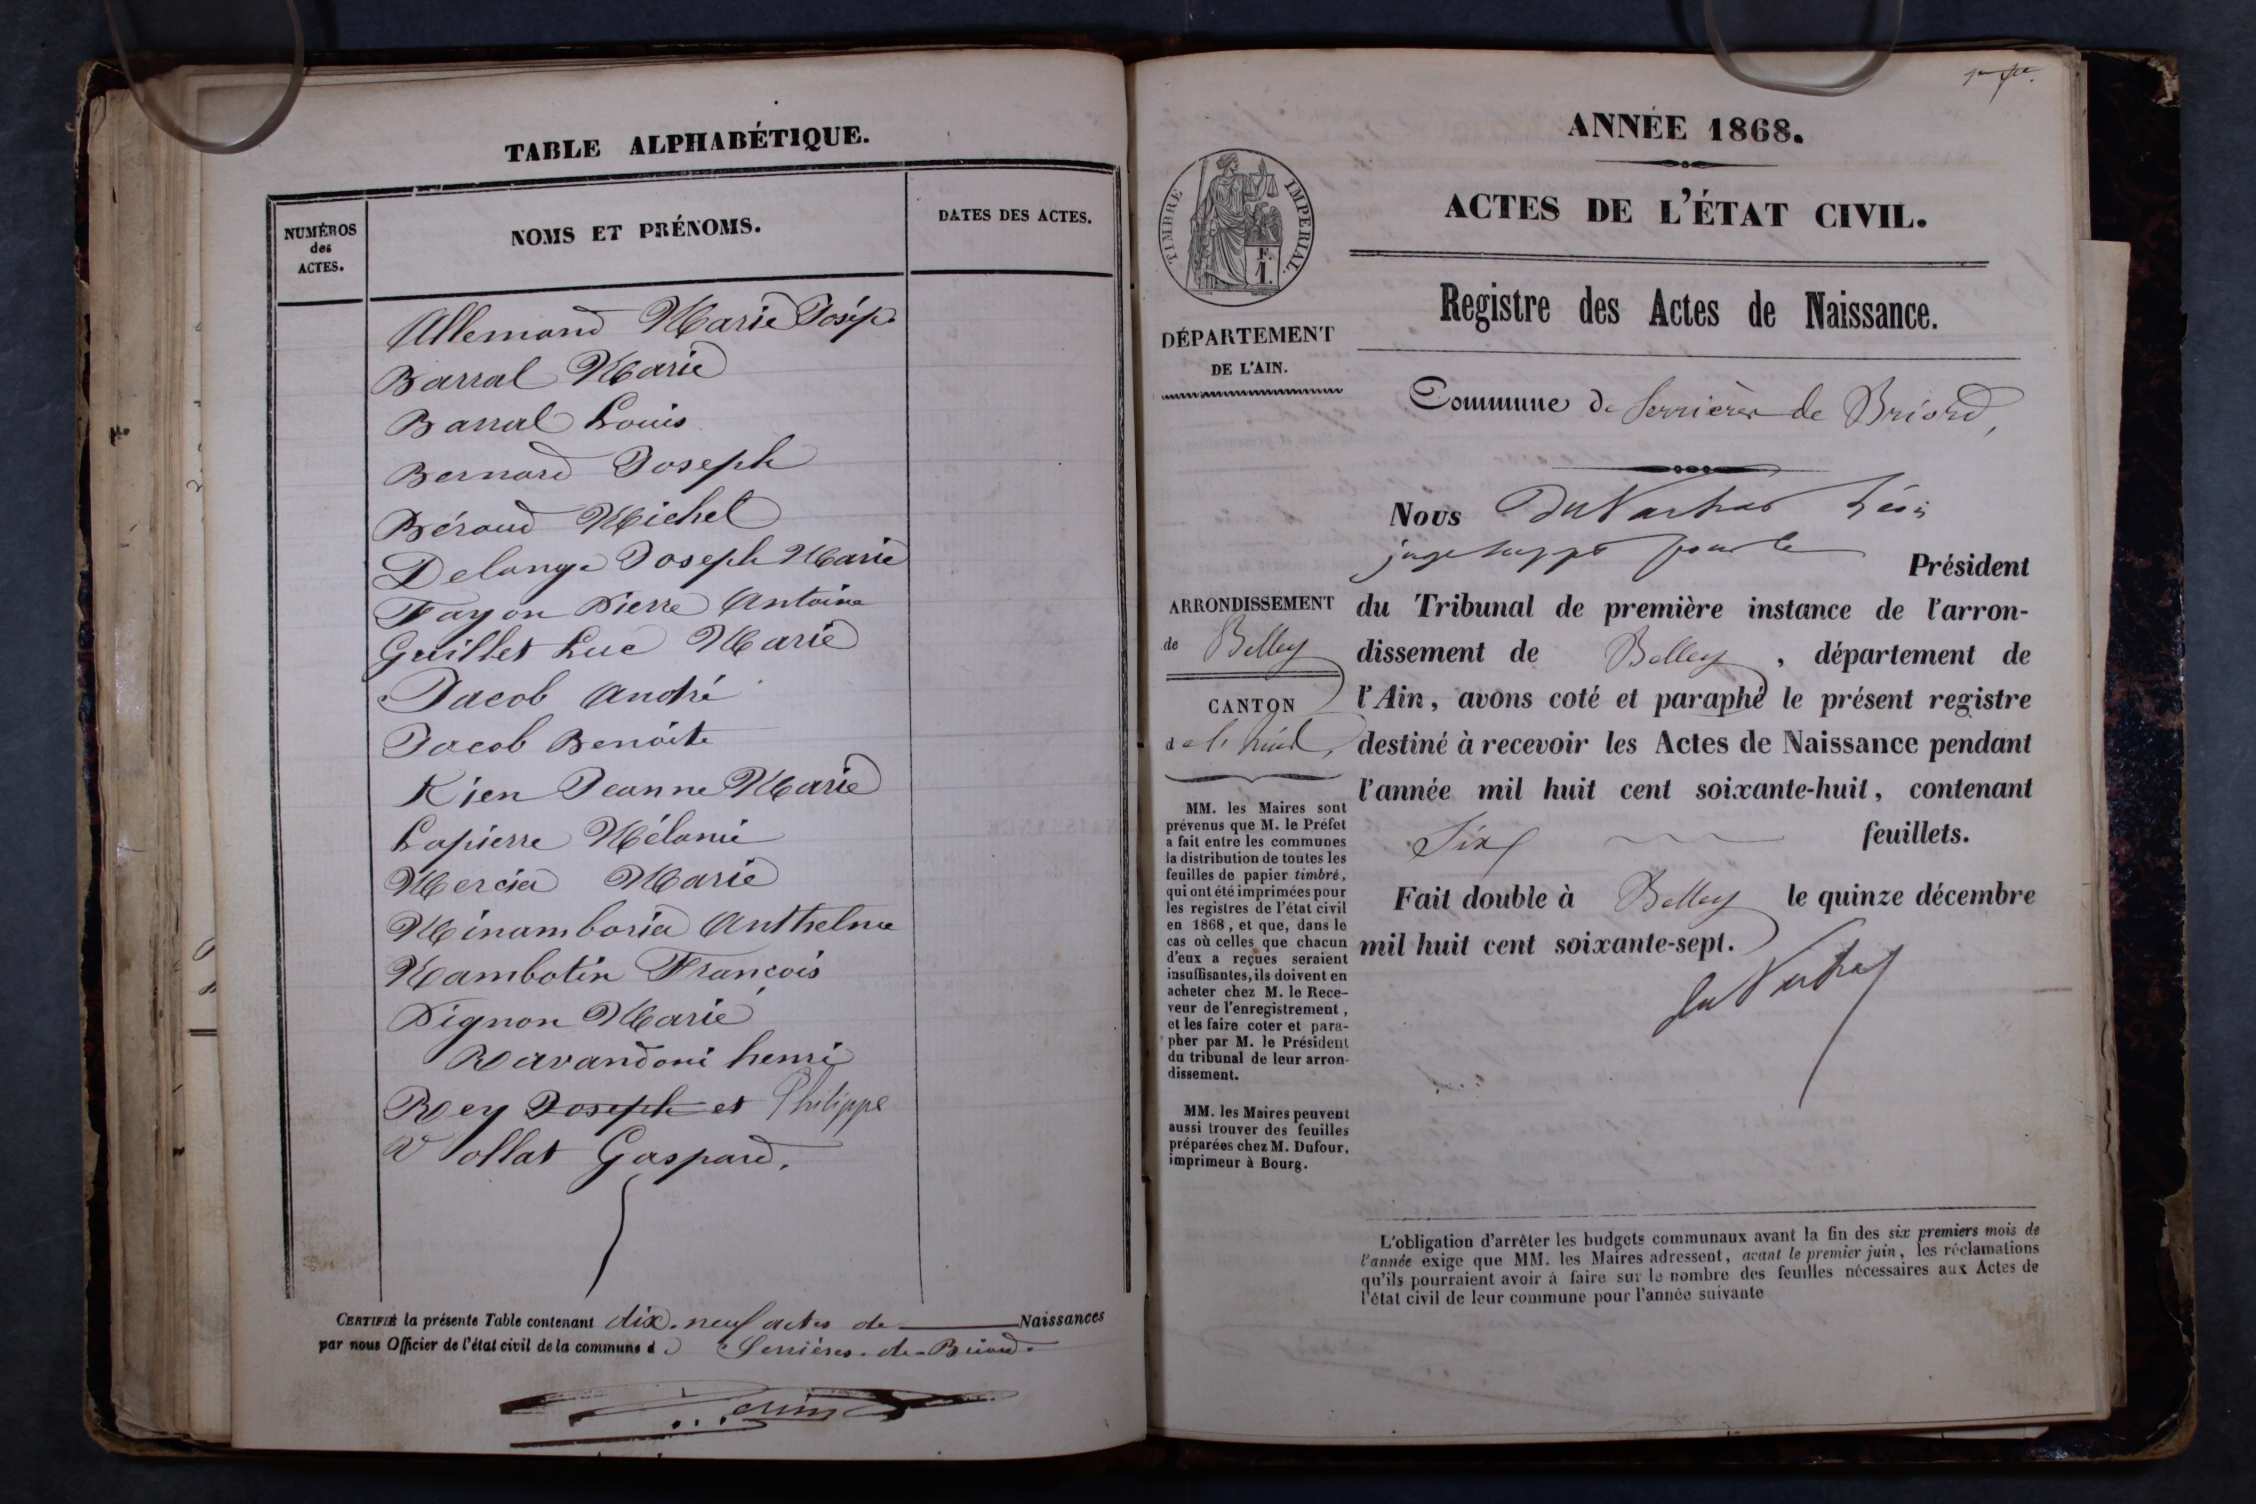 TABLE ALPHABÉTIQUE.
NUMÉROS
des
ACTES.
NOMS ET PRÉNOMS.
DATES DES ACTES.
Allemand Marie Josép.
Barral Marie
Barral Louis
Bernard Joseph
Béraud Michel
Delange Joseph Marie
Fayon Pierre Antoine
Guillet Luc Marie
Jacob André
Jacob Benoite
Kien Jeanne Marie
Lapierre Mélanie
Mercier Marie
Anthelme
Mambotin François
Pignon Marie
Ravandoni henri
Rey Joseph et Philippe
Vollat Gaspard.
CERTIFIÉ la présente Table contenant dix-neuf actes de Naissances
par nous Officier de l'état civil de la commune d Serrières-de-Briord.
ANNÉE 1868.
ACTES DE L'ÉTAT CIVIL.
Registre des Actes de Naissance.
TIMBRE IMPERIAL.
F.
1.
DÉPARTEMENT
DE L'AIN.
Commune de Serrières de Briord,
Nous
Président
ARRONDISSEMENT
de Belley
CANTON
MM. les Maires sont
prévenus que M. le Préfet
a fait entre les communes
la distribution de toutes les
feuilles de papier timbré,
qui ont été imprimées pour
les registres de l'état civil
en 1868, et que, dans le
cas où celles que chacun
d'eux a reçues seraient
insuffisantes, ils doivent en
acheter chez M. le Rece-
veur de l'enregistrement,
et les faire coter et para-
pher par M. le Président
du tribunal de leur arron-
dissement.
MM. les Maires peuvent
aussi trouver des feuilles
préparées chez M. Dufour,
imprimeur à Bourg.
du Tribunal de première instance de l'arron-
dissement de Belley, département de
l'Ain, avons coté et paraphé le présent registre
destiné à recevoir les Actes de Naissance pendant
l'année mil huit cent soixante-huit, contenant
Six feuillets.
Fait double à Belley le quinze décembre
mil huit cent soixante-sept.
L'obligation d'arrêter les budgets communaux avant la fin des six premiers mois de
l'année exige que MM. les Maires adressent, avant le premier juin, les réclamations
qu'ils pourraient avoir à faire sur le nombre des feuilles nécessaires aux Actes de
l'état civil de leur commune pour l'année suivante